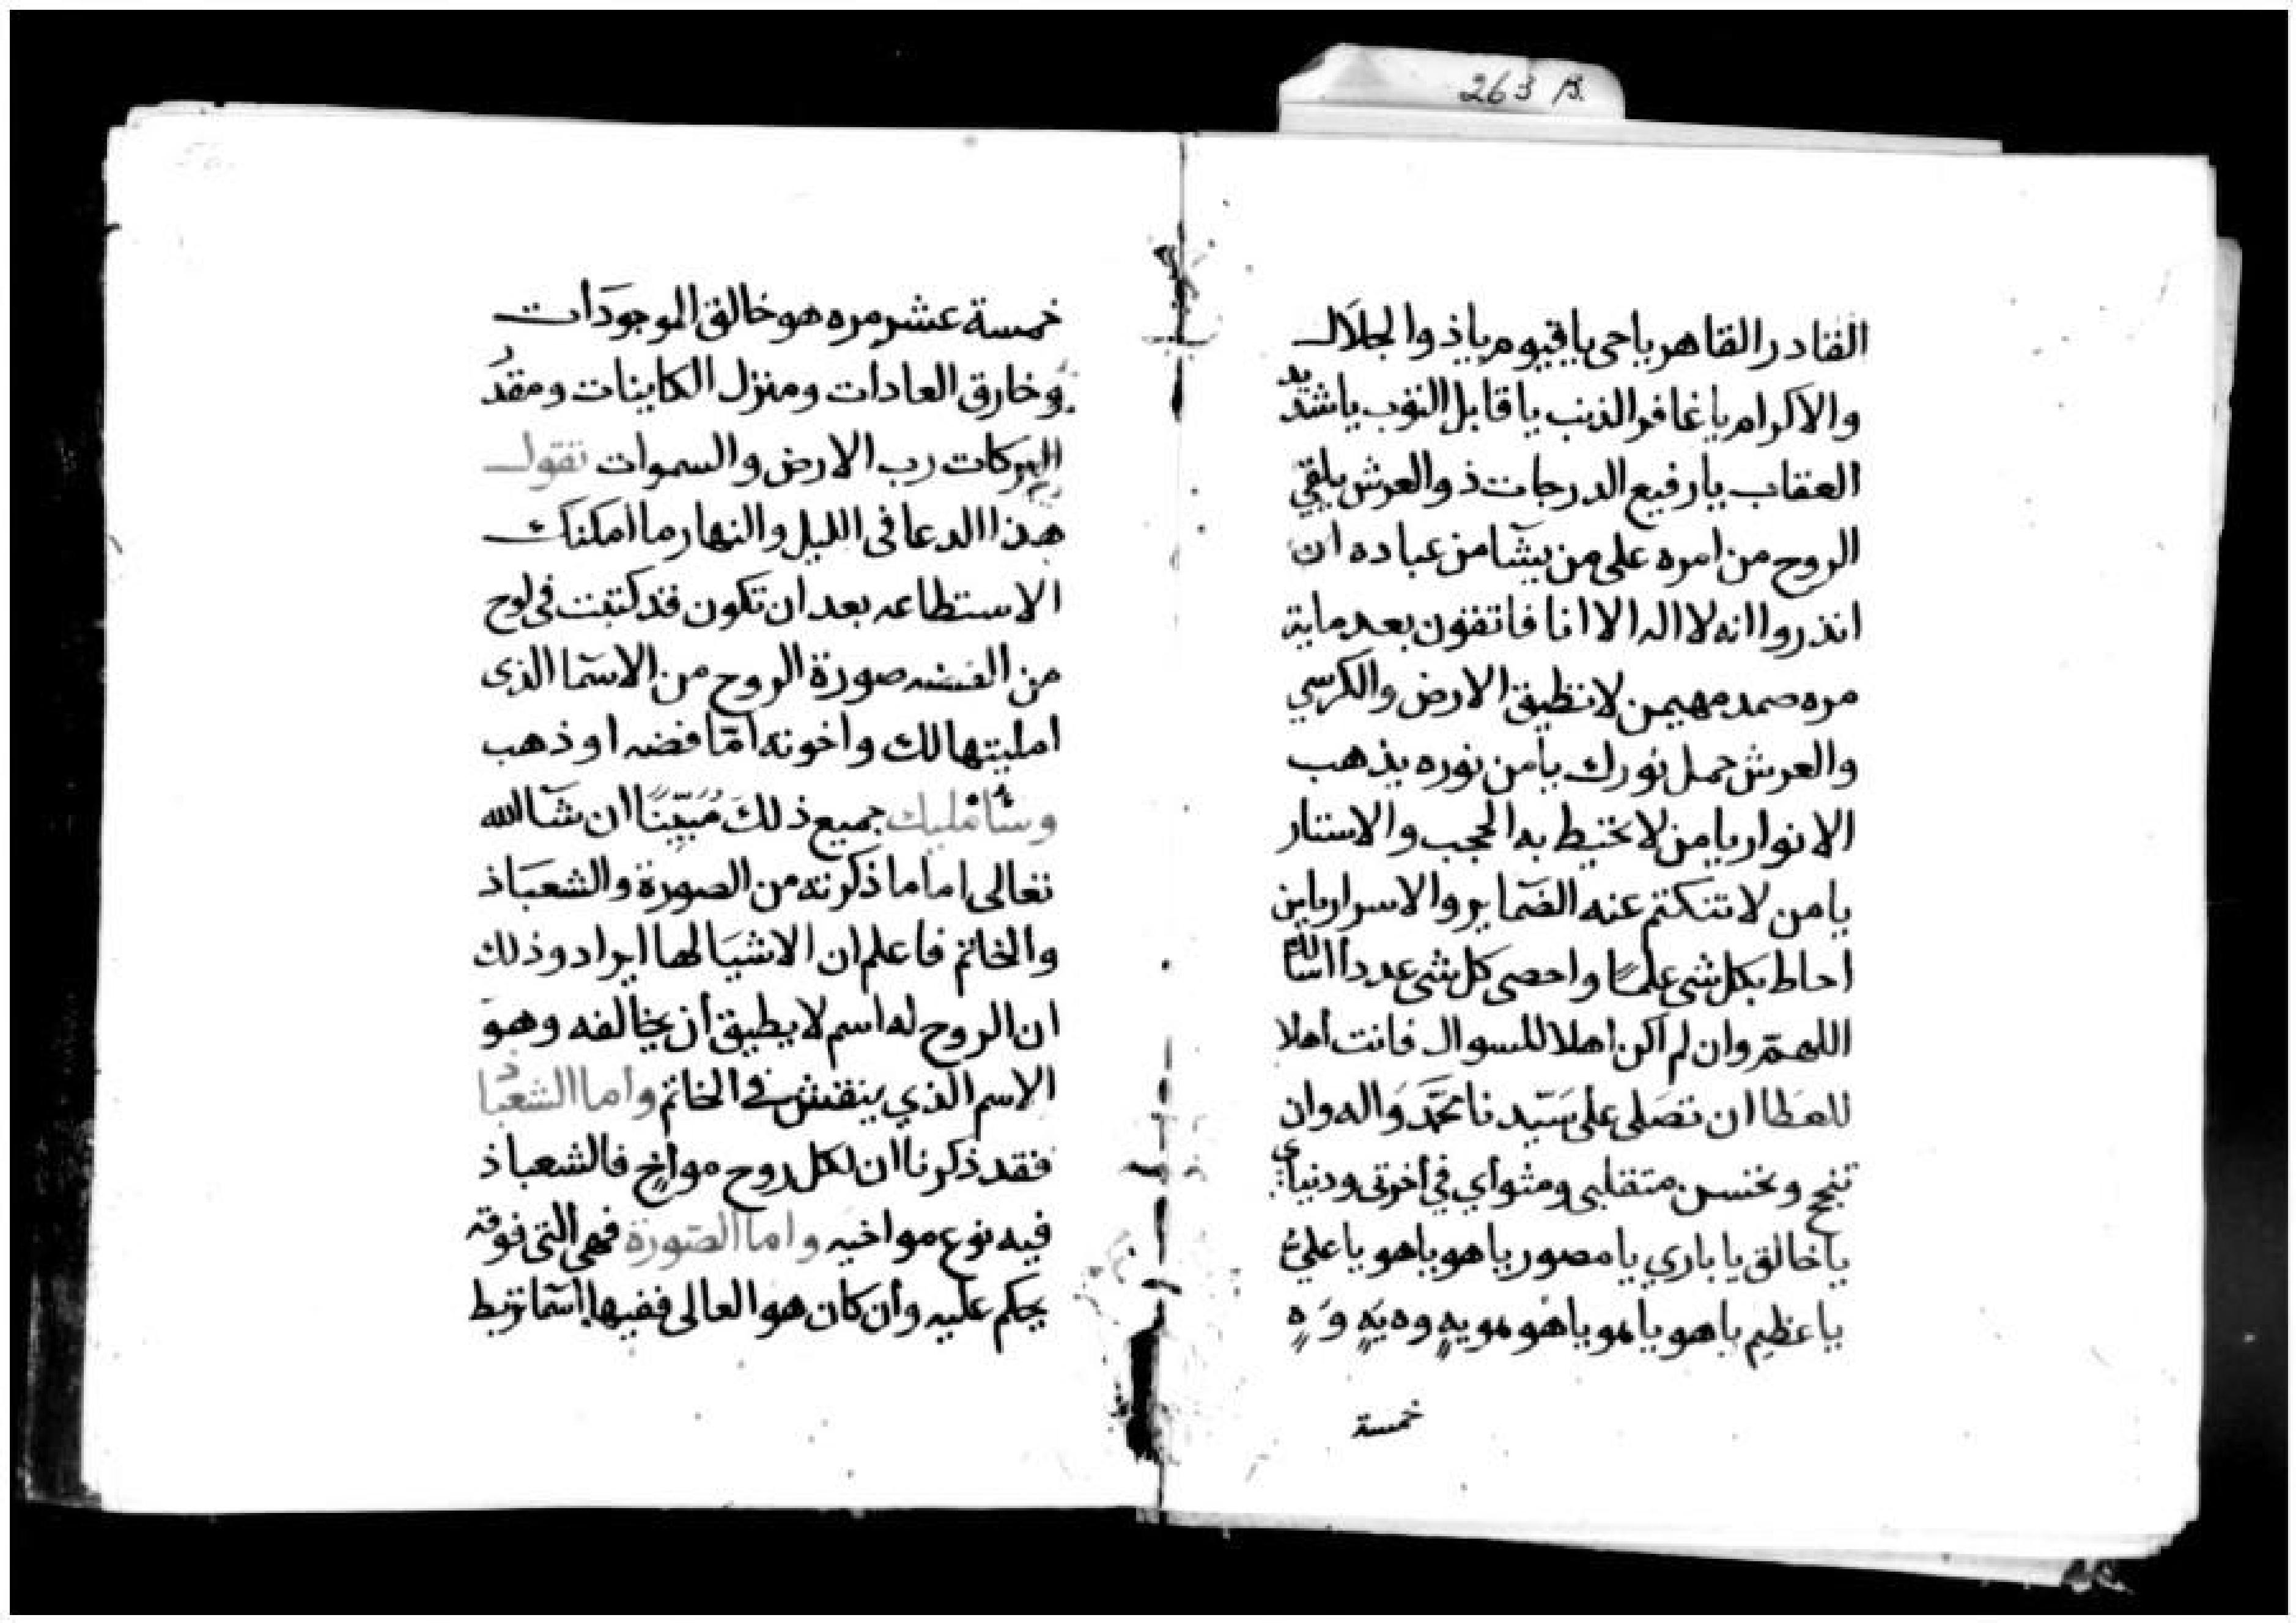 263 B.
القادر القاهر ياحى ياقيوم ياذوالجلال
والاكرام ياغافر الذنب ياقابل التوب ياشديد
العقاب يارفيع الدرجات ذوالعرش يلقي
الروح من امره على من يشآ من عباده ان
انذروا انه لااله الا انا فاتقون بعد ماية
مره صمد مهيمن لاتطيق الارض والكرسي
والعرش حمل نورك يامن نوره يذهب
الانوار يامن لا تحيط به الحجب والاستار
يامن لاتنكتم عنه الضمآير والاسرار يامن
احاط بكل شى علمًا واحصى كل شى عددا اسالك
اللهمّ وان لم اكن اهلا للسوال فانت اهلا
للعطا ان تصَلى على سَيّدنا محمَّد وَاله وان
تنجح وتحسن متقلبى ومثواي في أخرتى ودنياي
ياخالق ياباري يامصور ياهو ياهو ياعلىُ
ياعظيم ياهو ياهو ياهو هويهٍ وه يَهٍ وَهٍ
خمسة
خمسة عشر مره هو خالق الموجودَات
وخارق العادات ومنزل الكاينات ومقدر
البركات رب الارض والسموات تقول
هذا الدعا فى الليل والنهار ما امكنك
الاستطاعه بعد ان تكون قد كتبت فى لوح
من صورة الروح من الاسمآ الذى
امليتها لك واخوته امّا فضه او ذهب
وسأمليك جميع ذلكَ مُبَيَّنًا ان شآ الله
تعالى اما ما ذكرته من الصورة والشعبَاذ
والخاتم فاعلم ان الاشيَا لها ايراد وذلك
ان الروح له اسم لايطيق أن يخالفه وهو
الاسم الذي ينقش في الخاتم وأما الشعباذ
فقد ذكرنا ان لكل روح مواخٍ فالشعباذ
فيه نوع مواخيه واما الصّورة فهى التى فوقه
يحكم عليه وأن كان هو العالى ففيها اسمآ تربط